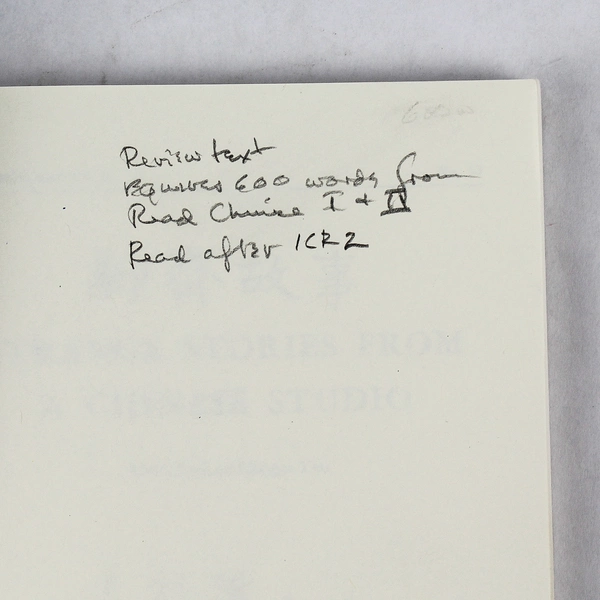 600w
Review text
Requires 600 words from
Read Chinese I + II
Read after ICR2
STRANGE STORIES FROM
A CHINESE STUDIO